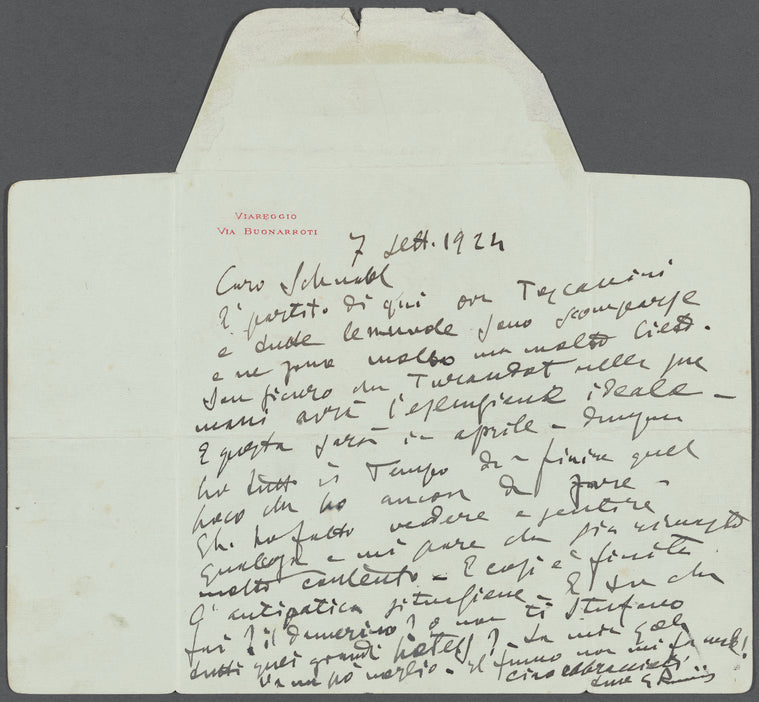 VIAREGGIO
VIA BUONARROTI
7 Sett. 1924
Caro Schnabl
È partito di qui ora Toscanini
e tutte le nuvole sono scomparse
e ne sono molto ma molto lieto.
Son sicuro che Turandot nelle sue
mani avrà l'esecuzione ideale —
E questa sarà in aprile — dunque
ho tutto il tempo di finire quel
poco che ho ancora da fare —
Gli ho fatto vedere e sentire
qualcosa e mi pare che sia rimasto
molto contento — E così è finita
l'antipatica situazione — E tu che
fai? il damerino? o non ti stufano
tutti quei grandi hotels? La mia gola
va un pò meglio — il fumo non mi fa male!
ciao abbracciati